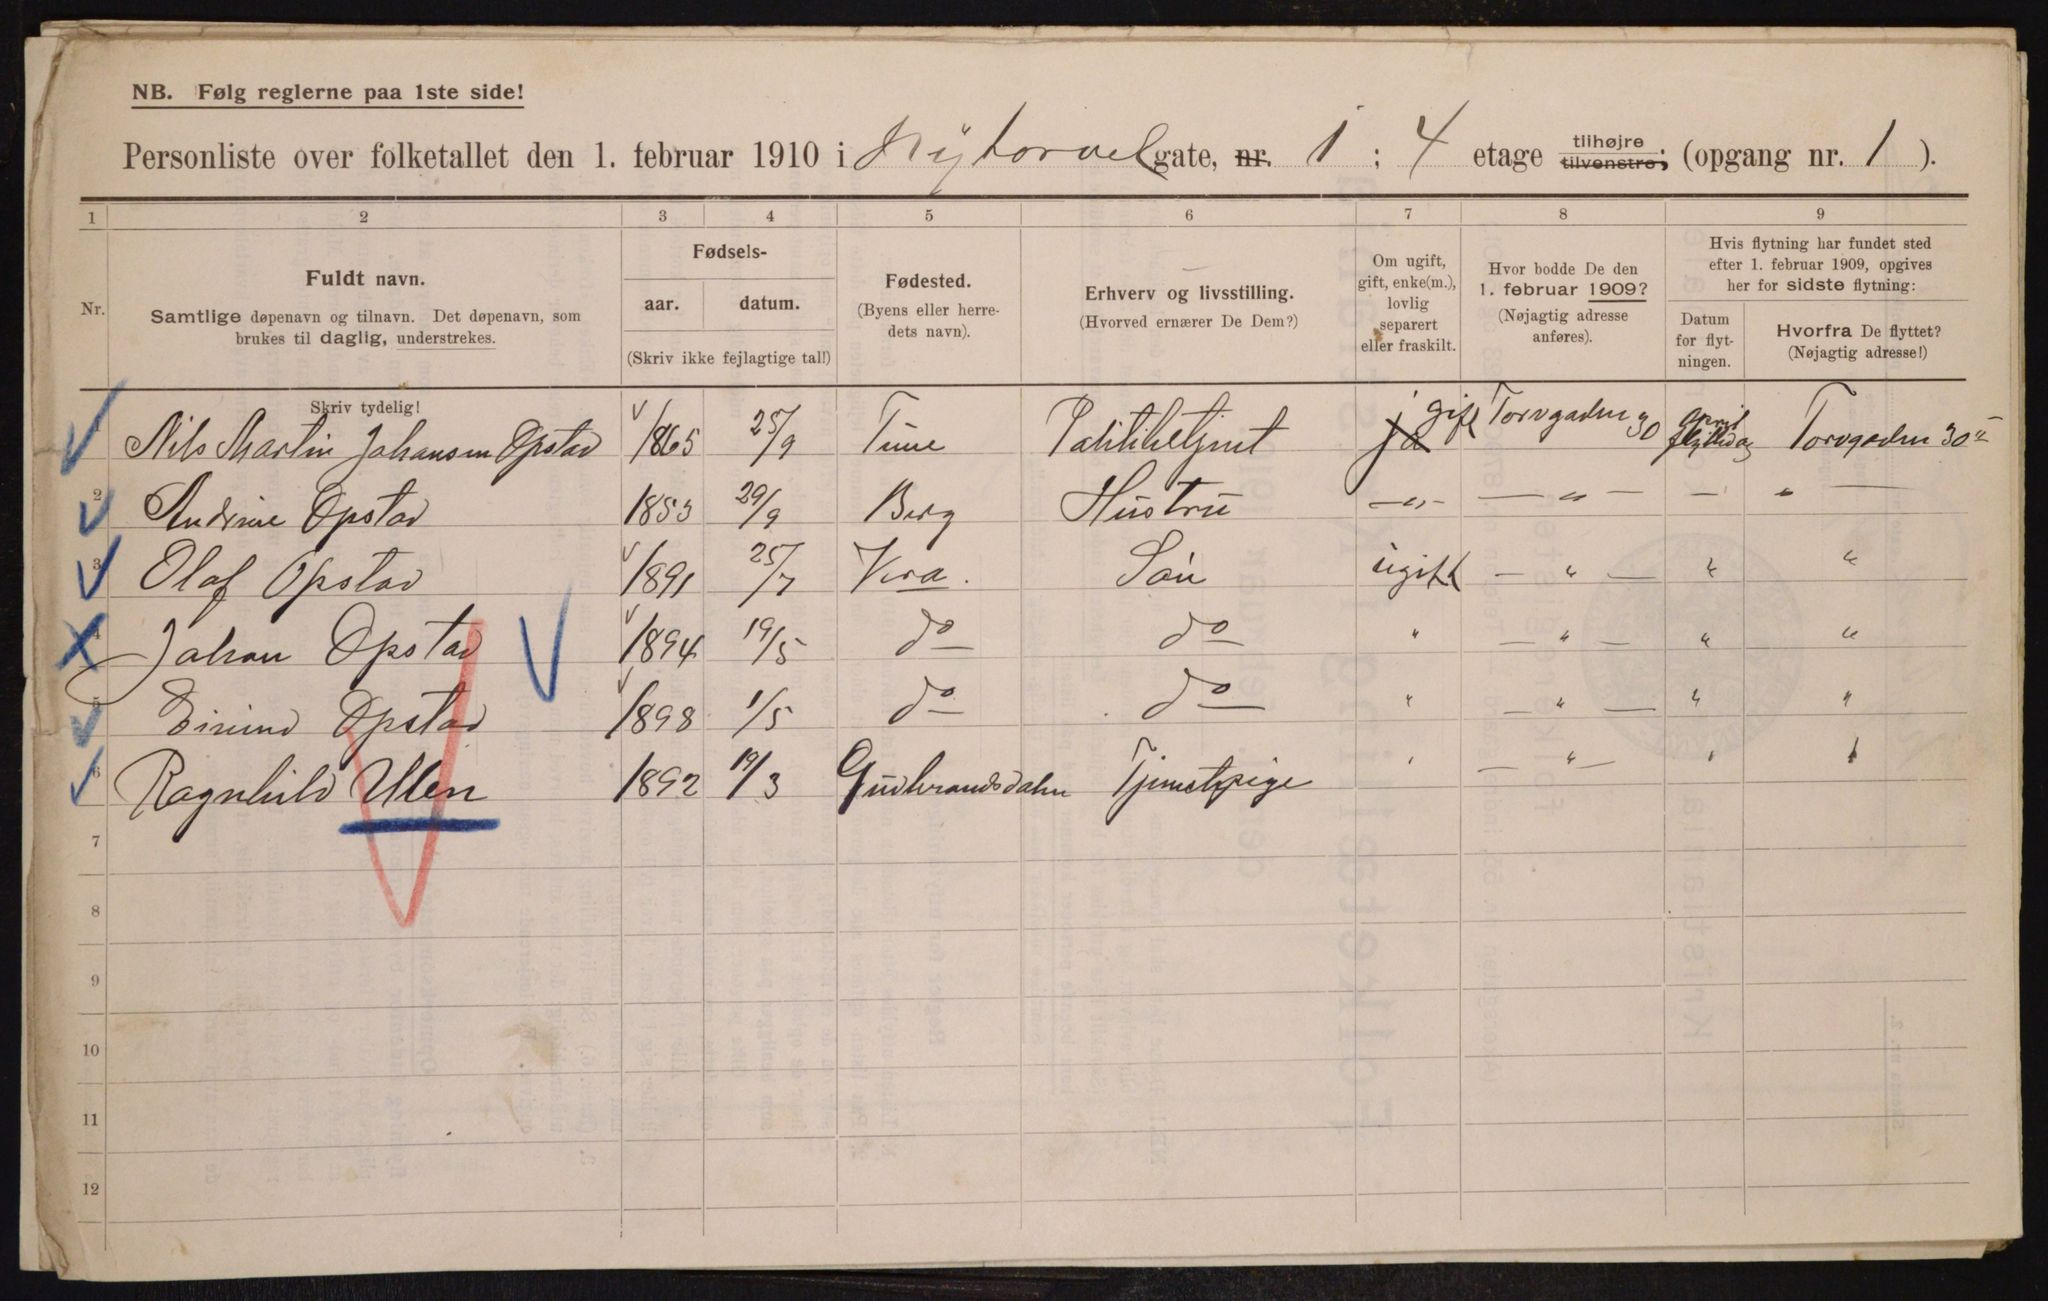 NB. Følg reglerne paa 1ste side!
Personliste over folketallet den 1. februar 1910 i Nytorvet gate, nr. 1 ; 4 etage tilhøjre tilvenstre; (opgang nr. 1 ).
1 2 3 4 5 6 7 8 9
Nr.
Fuldt navn.
Samtlige døpenavn og tilnavn. Det døpenavn, som
brukes til daglig, understrekes.
Skriv tydelig!
Fødsels-
aar. datum.
(Skriv ikke fejlagtige tal!)
Fødested.
(Byens eller herre-
dets navn).
Erhverv og livsstilling.
(Hvorved ernærer De Dem?)
Om ugift,
gift, enke(m.),
lovlig
separert
eller fraskilt.
Hvor bodde De den
1. februar 1909?
(Nøjagtig adresse
anføres).
Hvis flytning har fundet sted
efter 1. februar 1909, opgives
her for sidste flytning:
Datum
for flyt-
ningen.
Hvorfra De flyttet?
(Nøjagtig adresse!)
Nils Martin Johansen Opstad 1865 25/9 Tune Politibetjent ja gift Torvgaden 30 april flyttedag Torvgaden 30
2 Andrine Opstad 1853 29/9 Berg Hustru — " — — " — — " —
3 Olaf Opstad 1891 25/7 Kra. Søn ugift — " — " "
4 Johan Opstad 1894 19/5 do do " — " — " "
5 Eivind Opstad 1898 1/5 do do " — " — " "
6 Ragnhild Ulen 1892 19/3 Gudbrandsdalen Tjenestpige " — " — " "
7
8
9
10
11
12